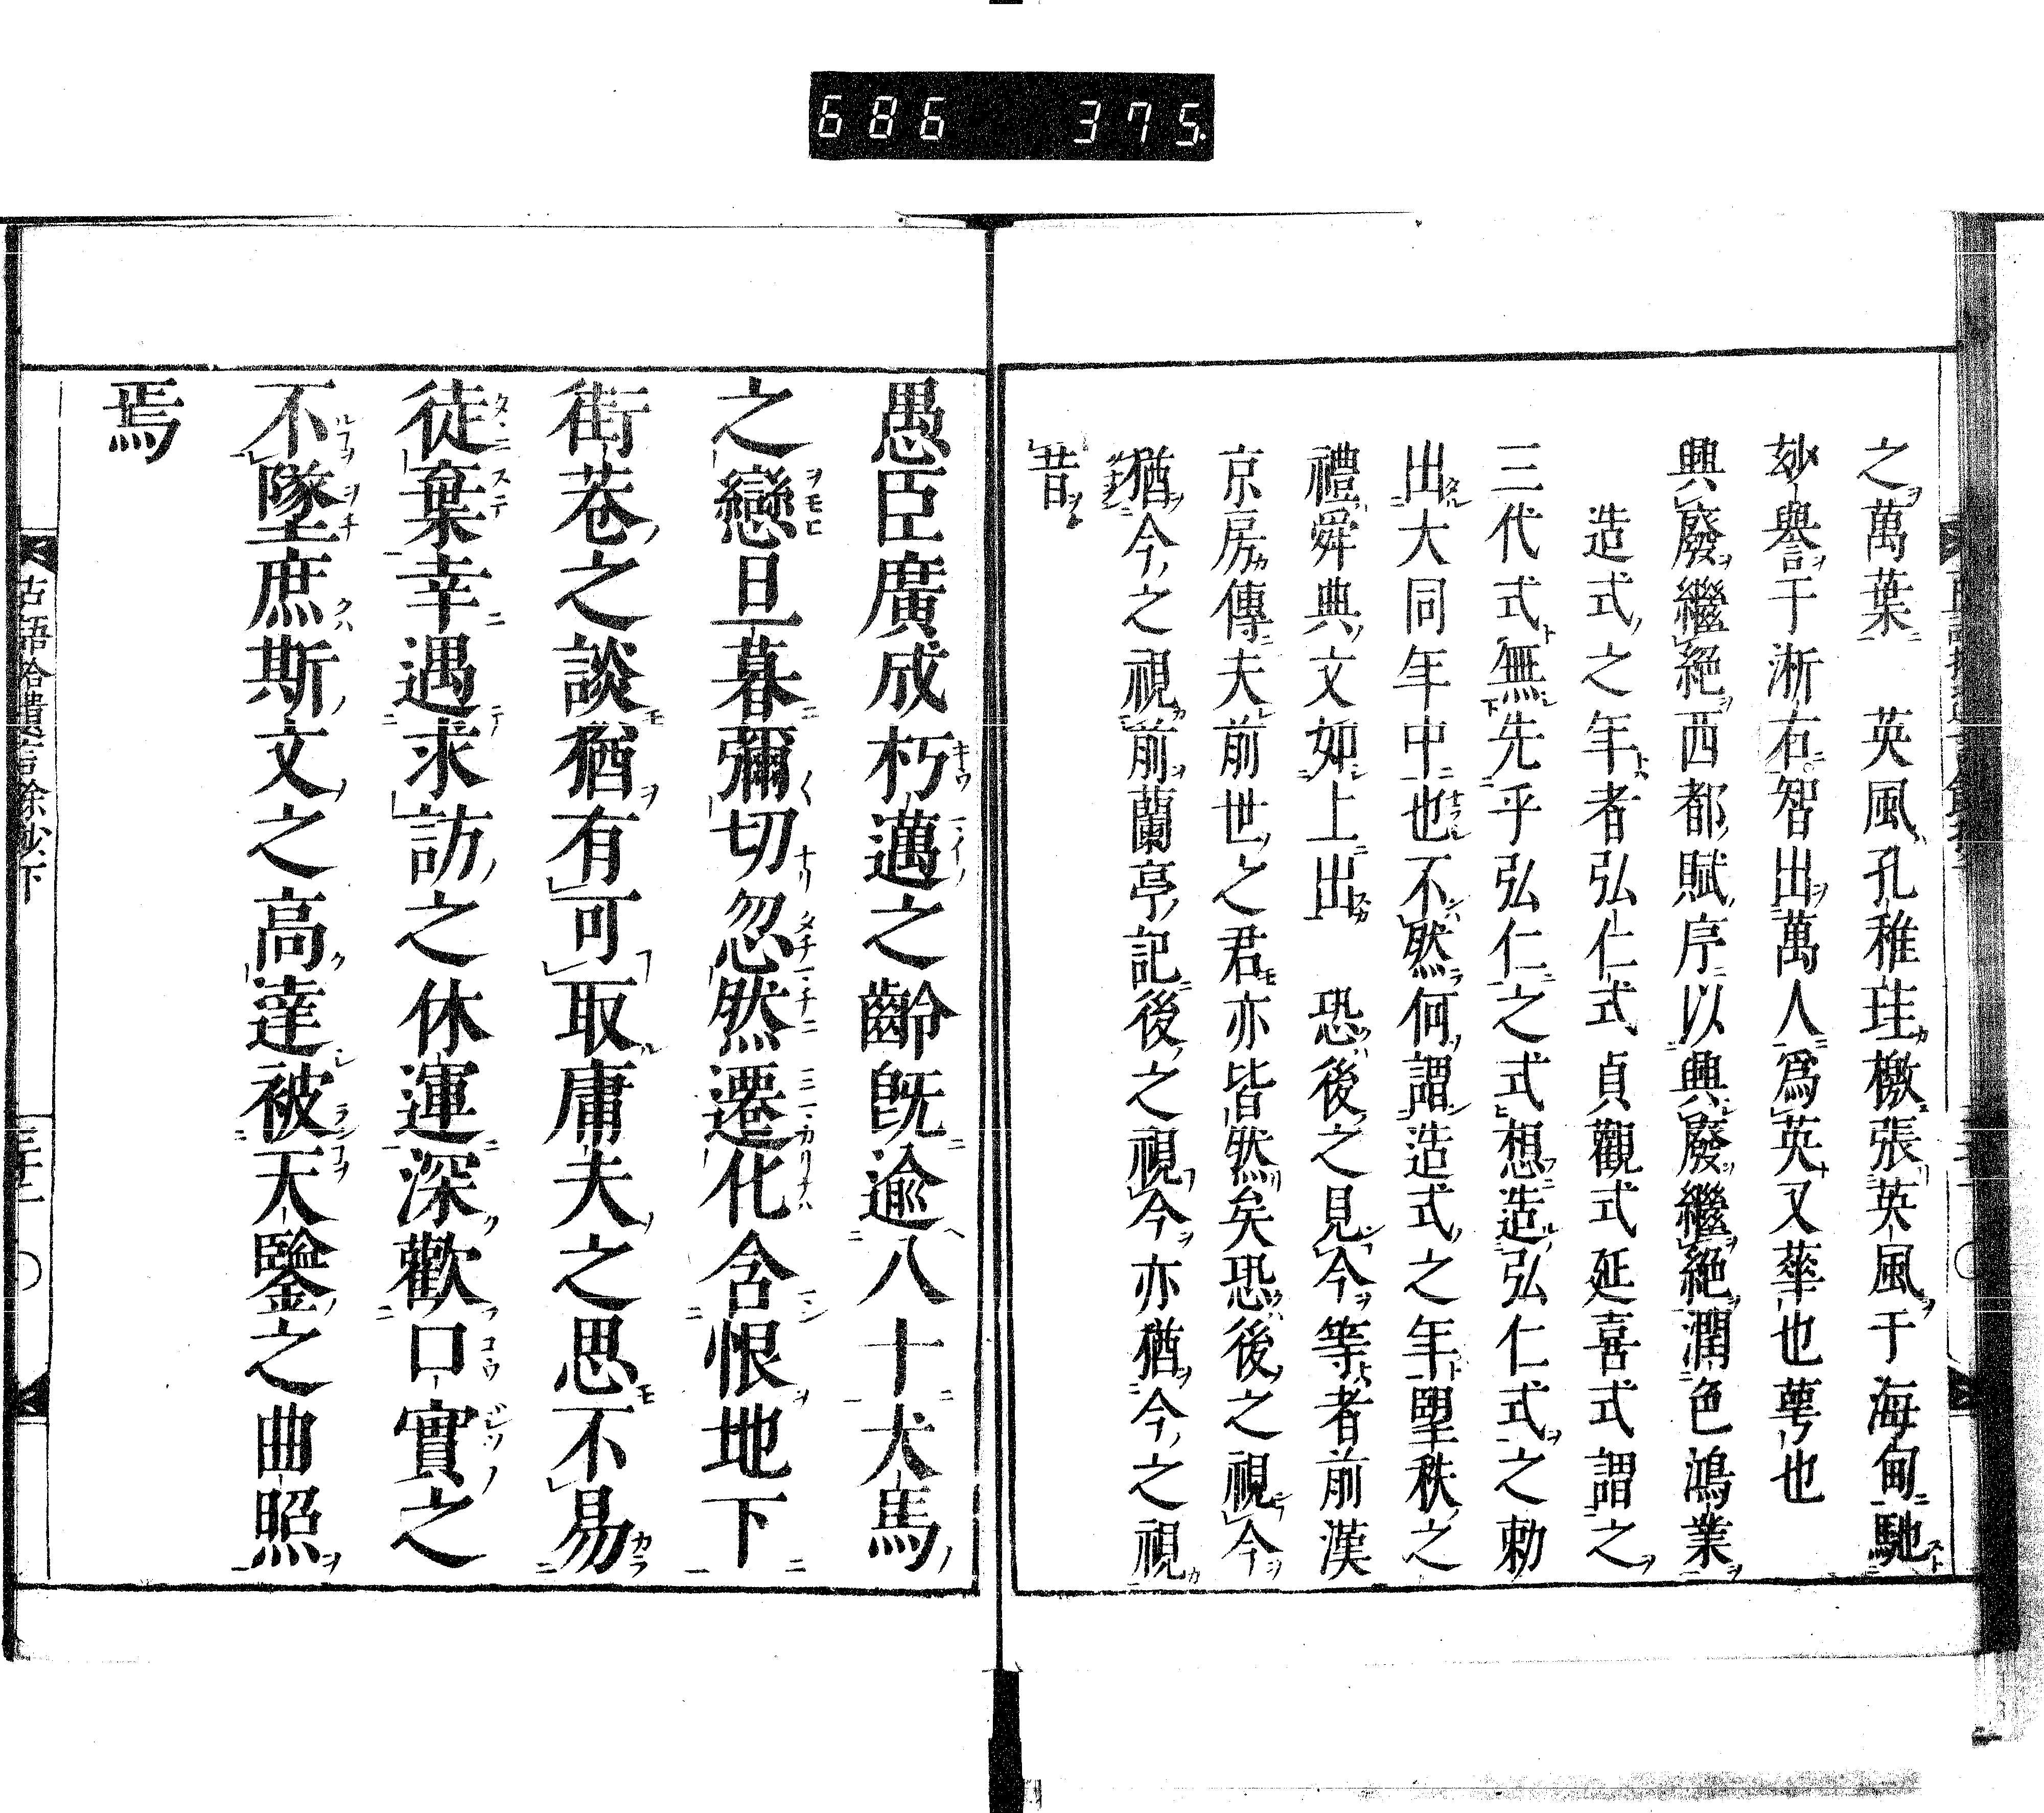 686 375
之萬葉　英風孔稚珪檄張英風于海甸馳
妙譽于淅右智出萬人爲英又華也萼也
興廢繼絕西都賦序以興廢繼絕潤色鴻業
造式之年者弘仁式貞觀式延喜式謂之
三代式無先乎弘仁之式想造弘仁式之勅
出大同年中也不然何謂造式之年望秩之
禮舜典文如上出　恐後之見今等者前漢
京房傳夫前世之君亦皆然矣恐後之視今
猶今之視前蘭亭記後之視今亦猶今之視
昔
愚臣廣成朽邁之齡既逾八十犬馬
之戀旦暮彌切忽然遷化含恨地下
街巷之談猶有可取庸夫之思不易
徒棄幸遇求訪之休運深歡口實之
不墜庶斯文之高達被天鑒之曲照
焉
古語拾遺言餘抄下